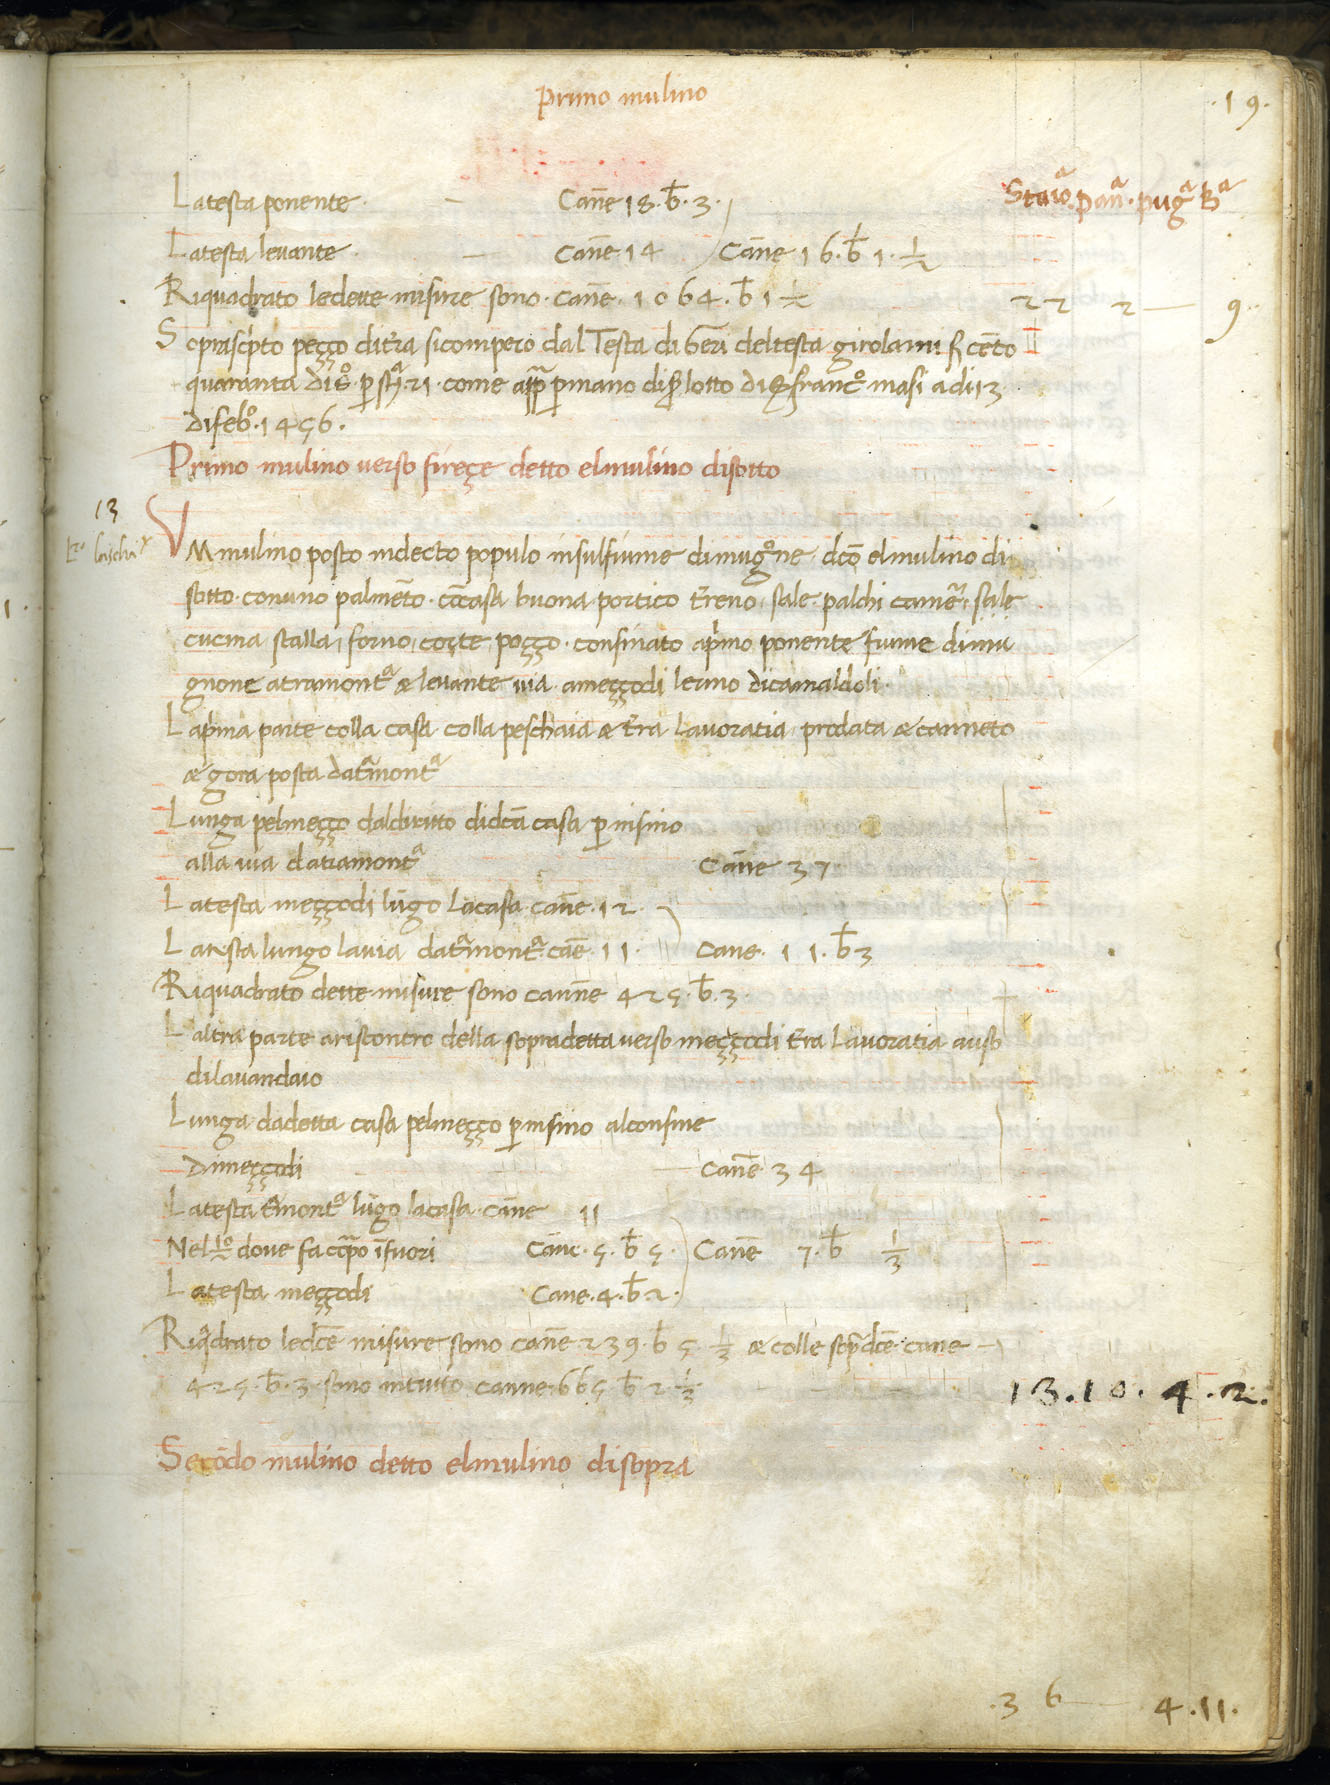 Primo mulino
.19.
Staiª. panª. pugª Bª
Latesta ponente. — Can̄e 18. b̄. 3.
Latesta levante. — can̄e 14 can̄e 16. b̄ 1. 1/2
Riquadrato ledette misure sono. can̄e. 1064. b̄ 1 1/2 22 2 — 9
Soprascp̃to peçço dit̃ra sicomperò dal Testa di Geri deltesta girolami cēto
quaranta di come ap̱p̱ p̱mano di lotto di francº. masi adi 13
difebº. 1456.
Primo mulino verso fireçe detto elmulino disotto
13
VM mulino posto indecto populo insulfiume dimugº̄ne. dc̄o elmulino di
sotto. conuno palmēto. cōcasa buona portico t̃reno. sale. palchi camēr. sale
cucina stalla forno corte poçço. confinato ap̃mo ponente fiume dimu
gnone atramontª æ levante via. ameççodi lermo dicamaldoli.
Lap̃ma parte colla casa colla peschaia æ t̃ra Lavoratia prodata æ canneto
æ gora posta dat̃montª
Lunga pelmeççо daldiritto didc̄a casa p̱ insino
alla via datramontª Can̄e 37
Latesta meççodi lūgo lacasa can̄e. 12.
Latesta lungo lavia dat̃montª. cāe. 11. Cane. 11. b̄ 3
Riquadrato dette misure sono canne 425. b̄. 3.
Laltra parte ariscontro della sopradetta verso meççodi t̃ra Lavoratia auso
dilavandaio
Lunga dadetta casa pelmeçço p̱ insino alconfine
dimeççodi — Canē 34
Latesta t̃montª lūgo lacasa. cāne 11
Nel 1º/2 dove fa cāpo īfuori Cāne. 5. b̄ 5. Canē 7. b̄ 1/3
Latesta meççodi Cane. 4. b̄ 2.
Riq̃drato ledc̄e misure sono can̄e 239. b̄ 5 1/3 æ colle sop̃dc̄e. cane —
425. b̄. 3. sono intutto canne. 665 b̄ 2 1/3. 13.10.4.2.
Secōdo mulino detto elmulino disopra
.36 — 4.11.